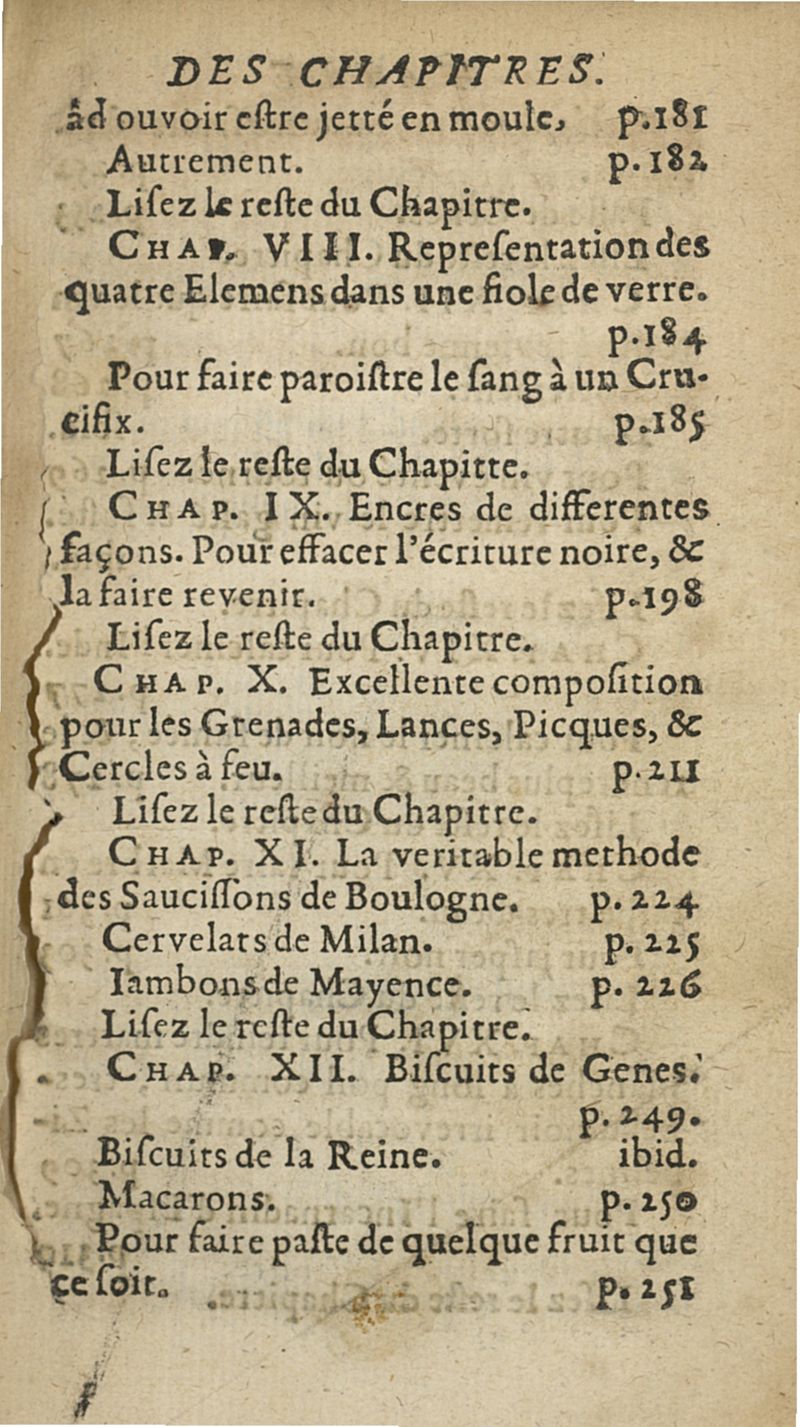 DES CHAPITRES.
âd ouvoir eſtre jetté en moule, p.181
Autrement. p. 182
Liſez le reſte du Chapitre.
CHAP. VIII. Repreſentation des
quatre Elemens dans une fiole de verre.
p.184
Pour faire paroiſtre le ſang à un Cru-
cifix. p.185
Liſez le reſte du Chapitte.
CHAP. IX. Encres de differentes
façons. Pour effacer l'écriture noire, &
la faire revenir. p.198
Liſez le reſte du Chapitre.
CHAP. X. Excellente compoſition
pour les Grenades, Lances, Picques, &
Cercles à feu. p.211
Liſez le reſte du Chapitre.
CHAP. XI. La veritable methode
des Sauciſſons de Boulogne. p. 224
Cervelats de Milan. p. 225
Iambons de Mayence. p. 226
Liſez le reſte du Chapitre.
CHAP. XII. Biſcuits de Genes.
p. 249.
Biſcuits de la Reine. ibid.
Macarons. p. 250
Pour faire paſte de quelque fruit que
ce ſoit. p. 251